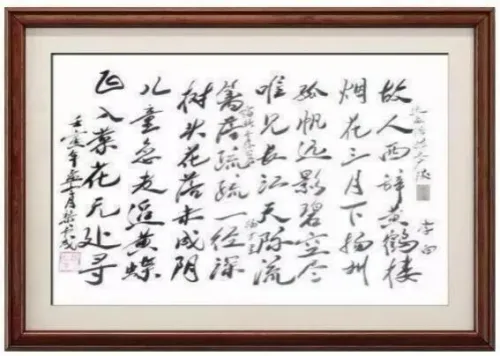 李白
故人西辞黄鹤楼
烟花三月下扬州
孤帆远影碧空尽
唯见长江天际流
宿新市徐公店
杨万里
篱落疏疏一径深
树头花落未成阴
儿童急走追黄蝶
飞入菜花无处寻
壬寅年